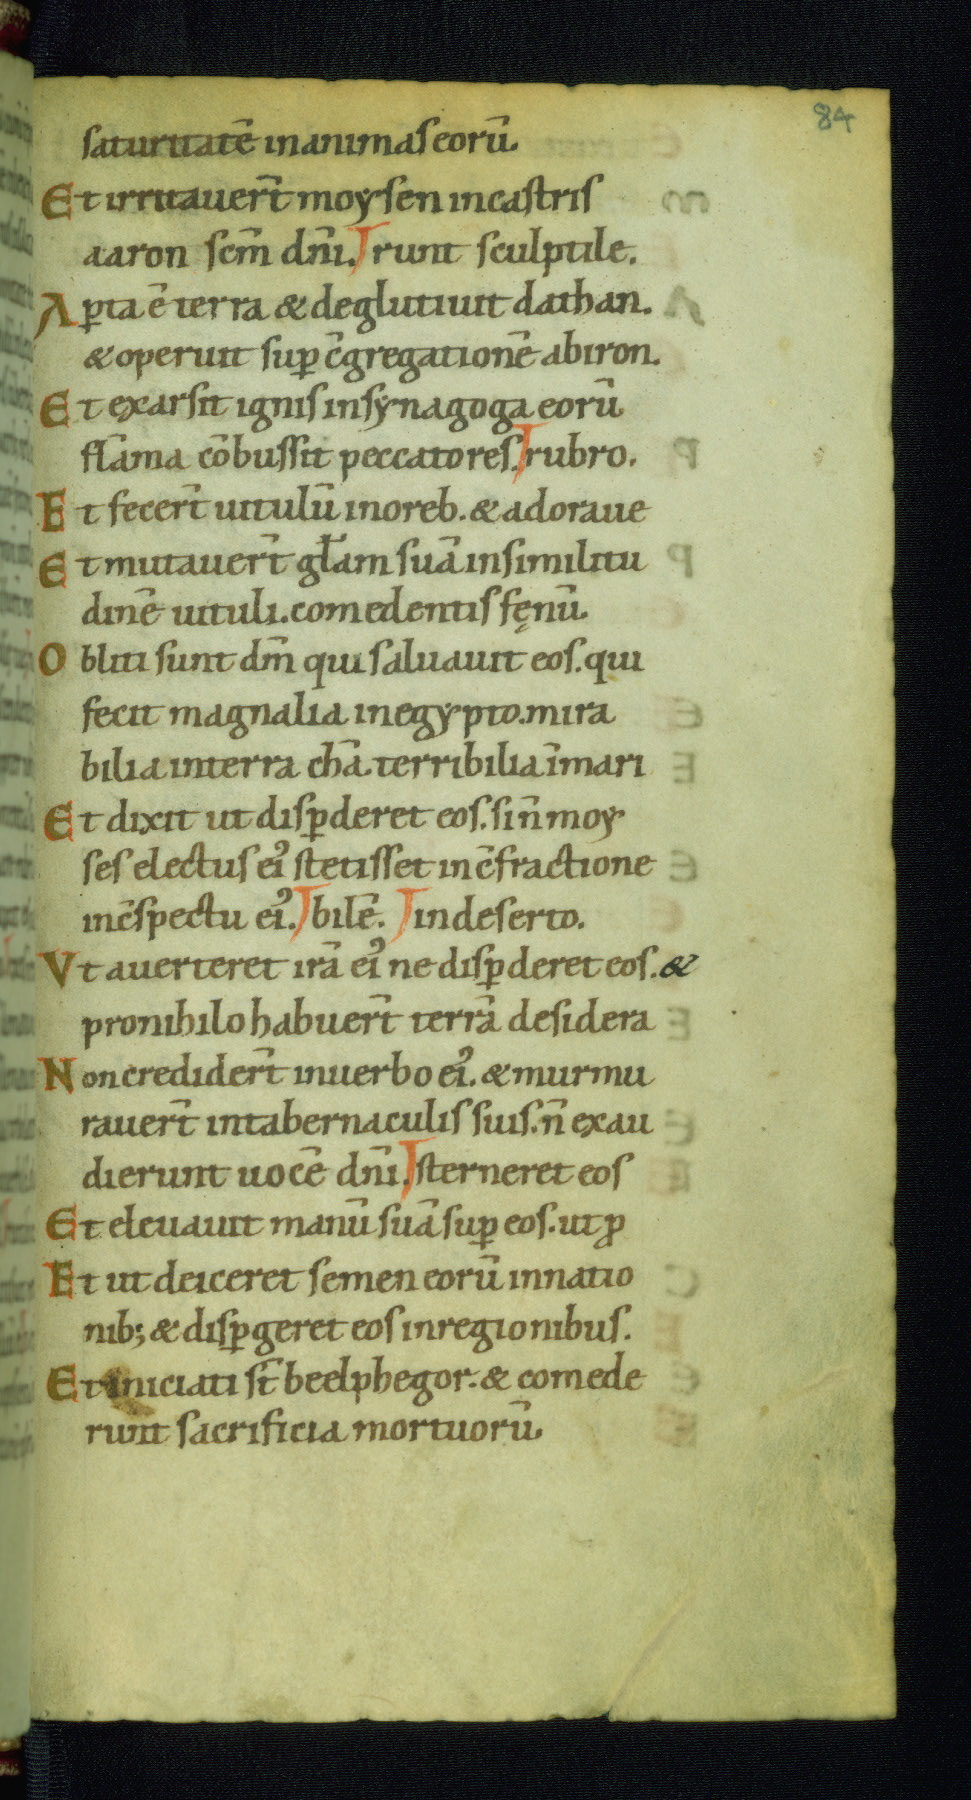 84
saturitatē inanimas eorū.
Et irritauer̄t moysen incastris
aaron scm̄ dn̄i. runt sculptile.
Aꝑta ē terra & deglutiuit dathan.
& operuit suꝑ c̄gregationē abiron.
Et exarsit ignis insynagoga eorū
flāma cōbussit peccatores. rubro.
Et fecer̄t uitulū inoreb. & adoraue
Et mutauer̄t gl̄am suā insimilitu
dinē uituli. comedentis fęnū.
Obliti sunt dm̄ qui saluauit eos. qui
fecit magnalia inegypto. mira
bilia interra chā. terribilia īmari
Et dixit ut disꝑderet eos. si n̄ moy
ses electus ei᾿ stetisset inc̄fractione
inc̄spectu ei᾿. bilē. indeserto.
Vt auerteret irā ei᾿ ne disꝑderet eos. &
pronihilo habuer̄t terrā desidera
Non credider̄t inuerbo ei᾿. & murmu
rauer̄t intabernaculis suis. n̄ exau
dierunt uocē dn̄i. sterneret eos
Et eleuauit manū suā suꝑ eos. ut ꝓ
Et ut deiceret semen eorū innatio
nib; & disꝑgeret eos inregionibus.
Et iniciati st̄ beelphegor. & comede
runt sacrificia mortuorū.